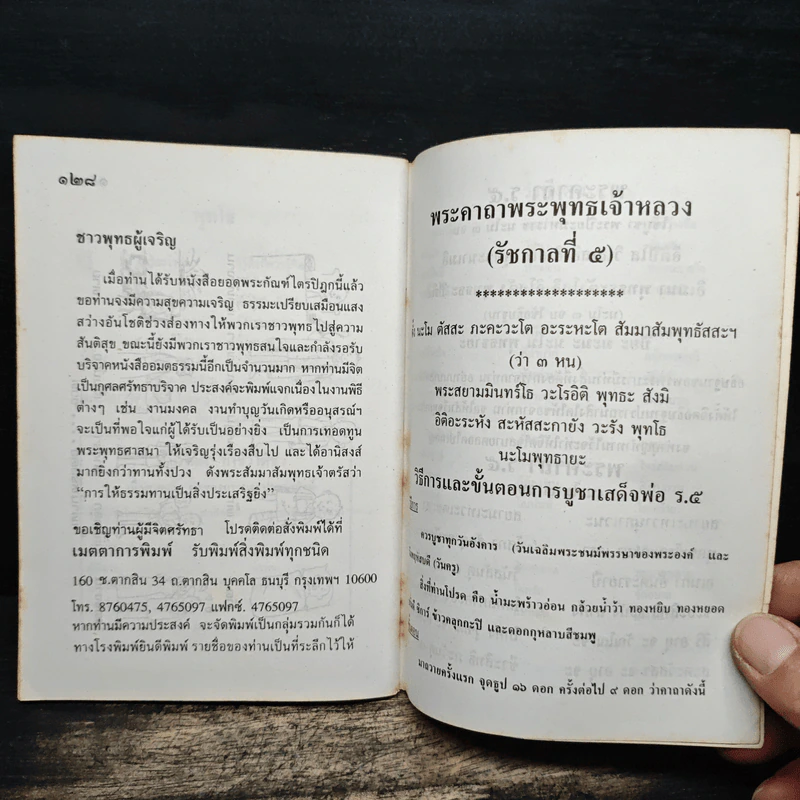 ๑๒๘
ชาวพุทธผู้เจริญ
เมื่อท่านได้รับหนังสือยอดพระกัณฑ์ไตรปิฎกนี้แล้ว
ขอท่านจงมีความสุขความเจริญ ธรรมะเปรียบเสมือนแสง
สว่างอันโชติช่วงส่องทางให้พวกเราชาวพุทธไปสู่ความ
สันติสุข ขณะนี้ยังมีพวกเราชาวพุทธสนใจและกำลังรอรับ
บริจาคหนังสืออมตธรรมนี้อีกเป็นจำนวนมาก หากท่านมีจิต
เป็นกุศลศรัทธาบริจาค ประสงค์จะพิมพ์แจกเนื่องในงานพิธี
ต่างๆ เช่น งานมงคล งานทำบุญวันเกิดหรืออนุสรณ์ฯ
จะเป็นที่พอใจแก่ผู้ได้รับเป็นอย่างยิ่ง เป็นการเทอดทูน
พระพุทธศาสนา ให้เจริญรุ่งเรืองสืบไป และได้อานิสงส์
มากยิ่งกว่าทานทั้งปวง ดังพระสัมมาสัมพุทธเจ้าตรัสว่า
“การให้ธรรมทานเป็นสิ่งประเสริฐยิ่ง”
ขอเชิญท่านผู้มีจิตศรัทธา โปรดติดต่อสั่งพิมพ์ได้ที่
เมตตาการพิมพ์ รับพิมพ์สิ่งพิมพ์ทุกชนิด
160 ซ.ตากสิน 34 ถ.ตากสิน บุคคโล ธนบุรี กรุงเทพฯ 10600
โทร. 8760475, 4765097 แฟกซ์. 4765097
หากท่านมีความประสงค์ จะจัดพิมพ์เป็นกลุ่มรวมกันก็ได้
ทางโรงพิมพ์ยินดีพิมพ์ รายชื่อของท่านเป็นที่ระลึกไว้ให้
พระคาถาพระพุทธเจ้าหลวง
(รัชกาลที่ ๕)
********************
นะโม ตัสสะ ภะคะวะโต อะระหะโต สัมมาสัมพุทธัสสะฯ
(ว่า ๓ หน)
พระสยามมินทร์โธ วะโรอิติ พุทธะ สังมิ
อิติอะระหัง สะหัสสะกายัง วะรัง พุทโธ
นะโมพุทธายะ
วิธีการและขั้นตอนการบูชาเสด็จพ่อ ร.๕
ควรบูชาทุกวันอังคาร (วันเฉลิมพระชนม์พรรษาของพระองค์ และ
(วันครู)
สิ่งที่ท่านโปรด คือ น้ำมะพร้าวอ่อน กล้วยน้ำว้า ทองหยิบ ทองหยอด
ข้าวคลุกกะปิ และดอกกุหลาบสีชมพู
มาถวายครั้งแรก จุดธูป ๑๖ ดอก ครั้งต่อไป ๙ ดอก ว่าคาถาดังนี้